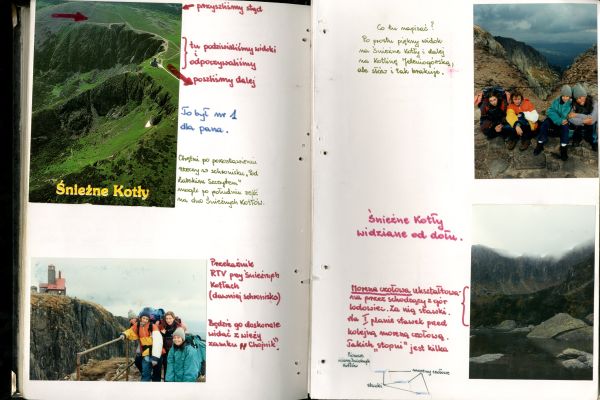 przyszliśmy stąd
tu podziwialiśmy widoki
i odpoczywaliśmy
poszliśmy dalej
To był nr 1
dla pana.
Chętni po pozostawieniu
rzeczy w schronisku "Pod
Łabskim Szczytem"
mogli po południu zejść
na dno Śnieżnych Kotłów.
Śnieżne Kotły
Przekaźnik
RTV przy Śnieżnych
Kotłach
(dawniej schronisko)
Będzie go doskonale
widać z wieży
zamku "Chojnik".
Co tu napisać?
Po prostu piękny widok
na Śnieżne Kotły i dalej
na Kotlinę Jeleniogórską,
ale słów i tak brakuje.
Śnieżne Kotły
widziane od dołu.
Morena czołowa ukształtowa-
na przez schodzący z gór
lodowiec. Za nią stawki.
Na I planie stawek przed
kolejną moreną czołową.
Takich "stopni" jest kilka
Kotłów
stawki
moreny czołowe